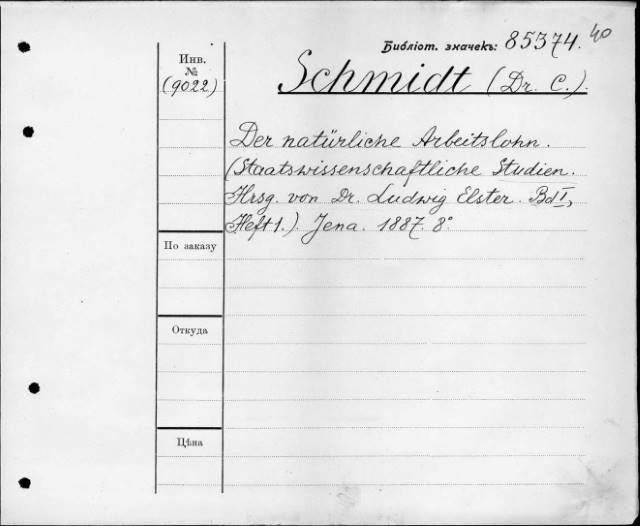 Библіот. значекъ: 85374. 40
Инв.
№
(9022)
Schmidt (Dr. C.).
Der natürliche Arbeitslohn.
(Staatswissenschaftliche Studien.
Hrsg. von Dr. Ludwig Elster. Bd I,
Heft 1.). Jena. 1887. 8°.
По заказу
Откуда
Цѣна